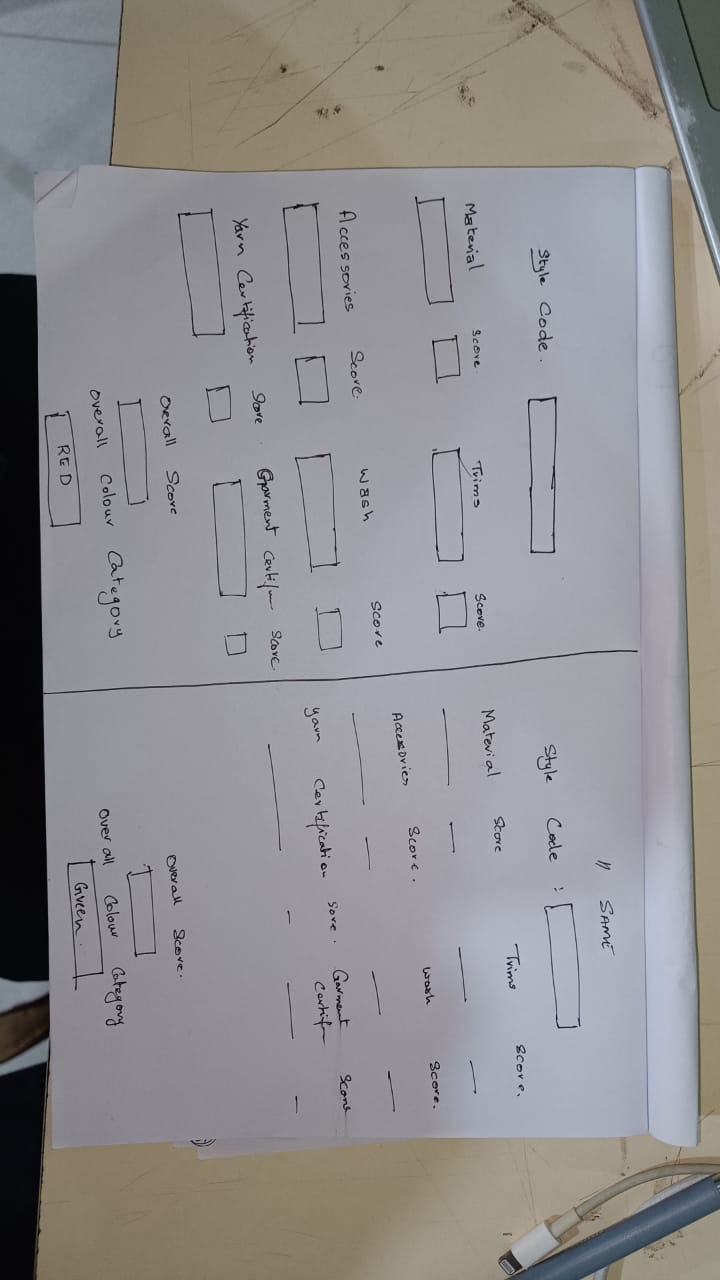 Style Code.
Material Score Trims Score.
Accessories Score. Wash Score
Yarn Certification Score Garment Certifn Score.
Overall Score
Overall Colour Category
RED
" SAME
Style Code :
Material Score Trims Score.
Accessories Score. Wash Score.
Yarn Certification Sore. Garment Score
Certifn
Overall Score.
Overall Colour Category
Green.